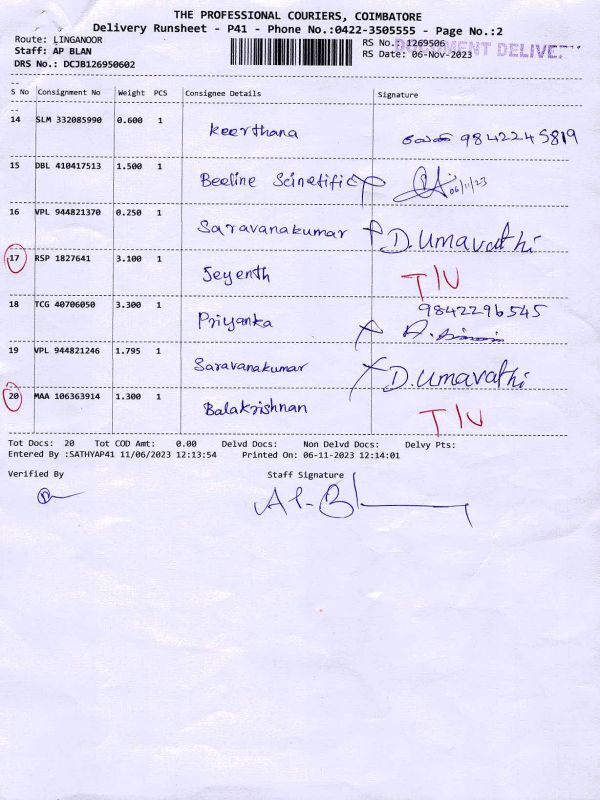 THE PROFESSIONAL COURIERS, COIMBATORE
Delivery Runsheet - P41 - Phone No.:0422-3505555 - Page No.:2
Route: LINGANOOR RS No.: 1269506 DOCUMENT DELIVE
Staff: AP BLAN RS Date: 06-Nov-2023
DRS No.: DCJB126950602
S No Consignment No Weight PCS Consignee Details Signature
14 SLM 332085990 0.600 1 Keerthana 9842245819
15 DBL 410417513 1.500 1 Beeline Scinetific 06/11/23
16 VPL 944821370 0.250 1 Saravanakumar D. Umavathi
17 RSP 1827641 3.100 1 Jeyenth T/U
18 TCG 40706050 3.300 1 Priyanka 9842296545
19 VPL 944821246 1.795 1 Saravanakumar D. Umavathi
20 MAA 106363914 1.300 1 Balakrishnan T/U
Tot Docs: 20 Tot COD Amt: 0.00 Delvd Docs: Non Delvd Docs: Delvy Pts:
Entered By :SATHYAP41 11/06/2023 12:13:54 Printed On: 06-11-2023 12:14:01
Verified By Staff Signature
A P. Bl